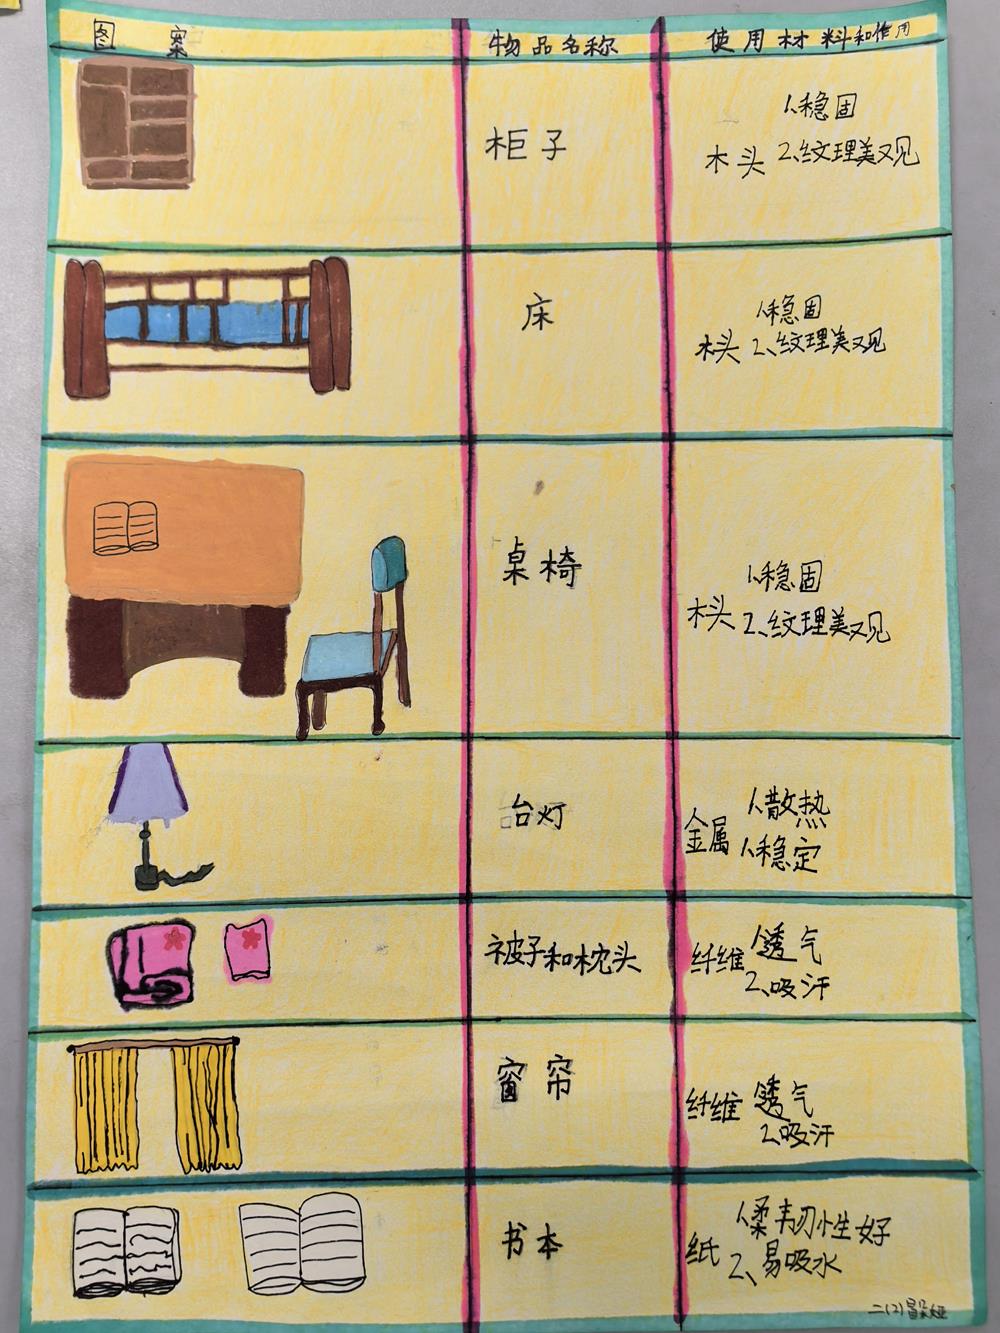 图案 物品名称 使用材料和作用
柜子
1、稳固
木头 2、纹理美观
床
1、稳固
木头 2、纹理美观
桌椅
1、稳固
木头 2、纹理美观
台灯
金属 1、散热
1、稳定
被子和枕头
纤维 1、透气
2、吸汗
窗帘
纤维 1、透气
2、吸汗
书本
纸 1、柔韧性好
2、易吸水
二(2)